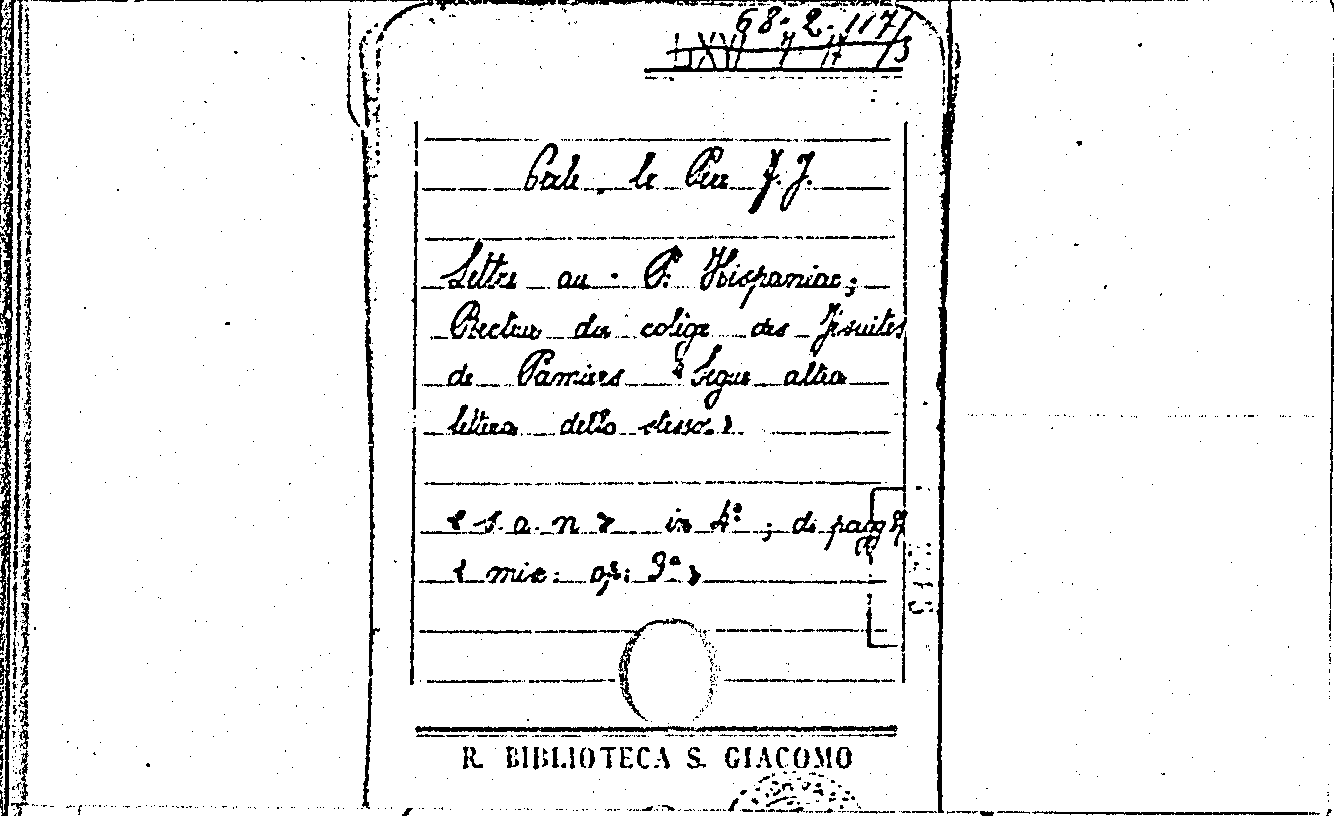 68-2-117/
LXVI 7 17 /3
le Père J. J.
Lettre au P. Hispaniac;
Recteur du colège des Jésuites
de Pamiers < Segue altra
lettera dello stesso >
< s. a. n > in 4º ; di pag 7
< mis: op: 9ª >
R. BIBLIOTECA S. GIACOMO